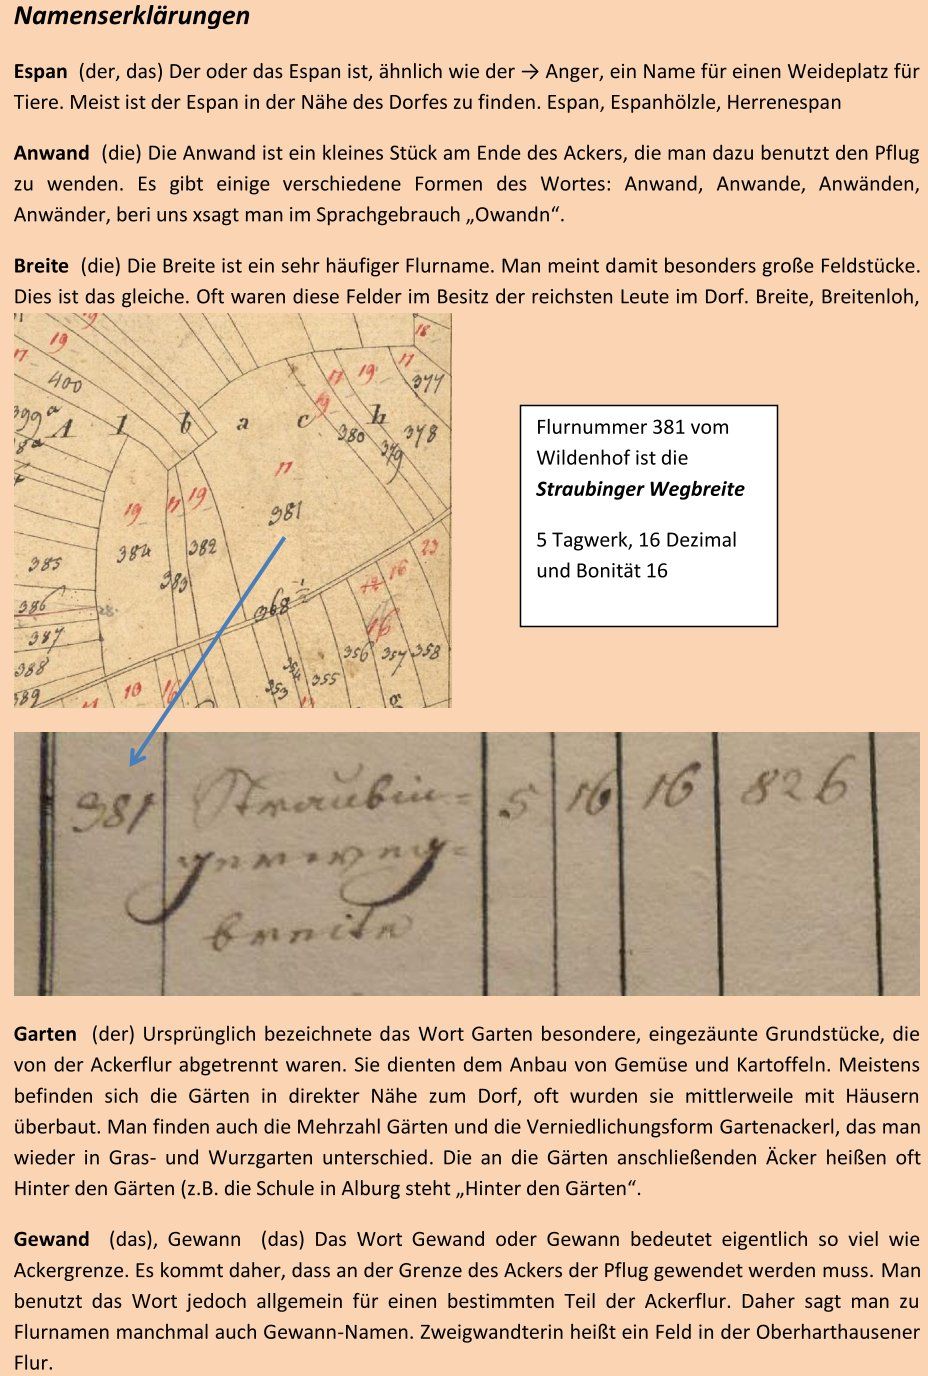 Namenserklärungen
Espan (der, das) Der oder das Espan ist, ähnlich wie der → Anger, ein Name für einen Weideplatz für
Tiere. Meist ist der Espan in der Nähe des Dorfes zu finden. Espan, Espanhölzle, Herrenespan
Anwand (die) Die Anwand ist ein kleines Stück am Ende des Ackers, die man dazu benutzt den Pflug
zu wenden. Es gibt einige verschiedene Formen des Wortes: Anwand, Anwande, Anwänden,
Anwänder, beri uns xsagt man im Sprachgebrauch „Owandn“.
Breite (die) Die Breite ist ein sehr häufiger Flurname. Man meint damit besonders große Feldstücke.
Dies ist das gleiche. Oft waren diese Felder im Besitz der reichsten Leute im Dorf. Breite, Breitenloh,
19
18
17 19
17 19 17
400 377
399 a 19
A l b a c h
8 a 380 379 378
17
19 17 19 381
384 382 23
385 383 16
386 368 ½
387 16
388 356 357 358
354
389 10 16 353 355
Flurnummer 381 vom
Wildenhof ist die
Straubinger Wegbreite
5 Tagwerk, 16 Dezimal
und Bonität 16
381 Straubin= 5 16 16 826
gerweg=
breite
Garten (der) Ursprünglich bezeichnete das Wort Garten besondere, eingezäunte Grundstücke, die
von der Ackerflur abgetrennt waren. Sie dienten dem Anbau von Gemüse und Kartoffeln. Meistens
befinden sich die Gärten in direkter Nähe zum Dorf, oft wurden sie mittlerweile mit Häusern
überbaut. Man finden auch die Mehrzahl Gärten und die Verniedlichungsform Gartenackerl, das man
wieder in Gras- und Wurzgarten unterschied. Die an die Gärten anschließenden Äcker heißen oft
Hinter den Gärten (z.B. die Schule in Alburg steht „Hinter den Gärten“.
Gewand (das), Gewann (das) Das Wort Gewand oder Gewann bedeutet eigentlich so viel wie
Ackergrenze. Es kommt daher, dass an der Grenze des Ackers der Pflug gewendet werden muss. Man
benutzt das Wort jedoch allgemein für einen bestimmten Teil der Ackerflur. Daher sagt man zu
Flurnamen manchmal auch Gewann-Namen. Zweigwandterin heißt ein Feld in der Oberharthausener
Flur.